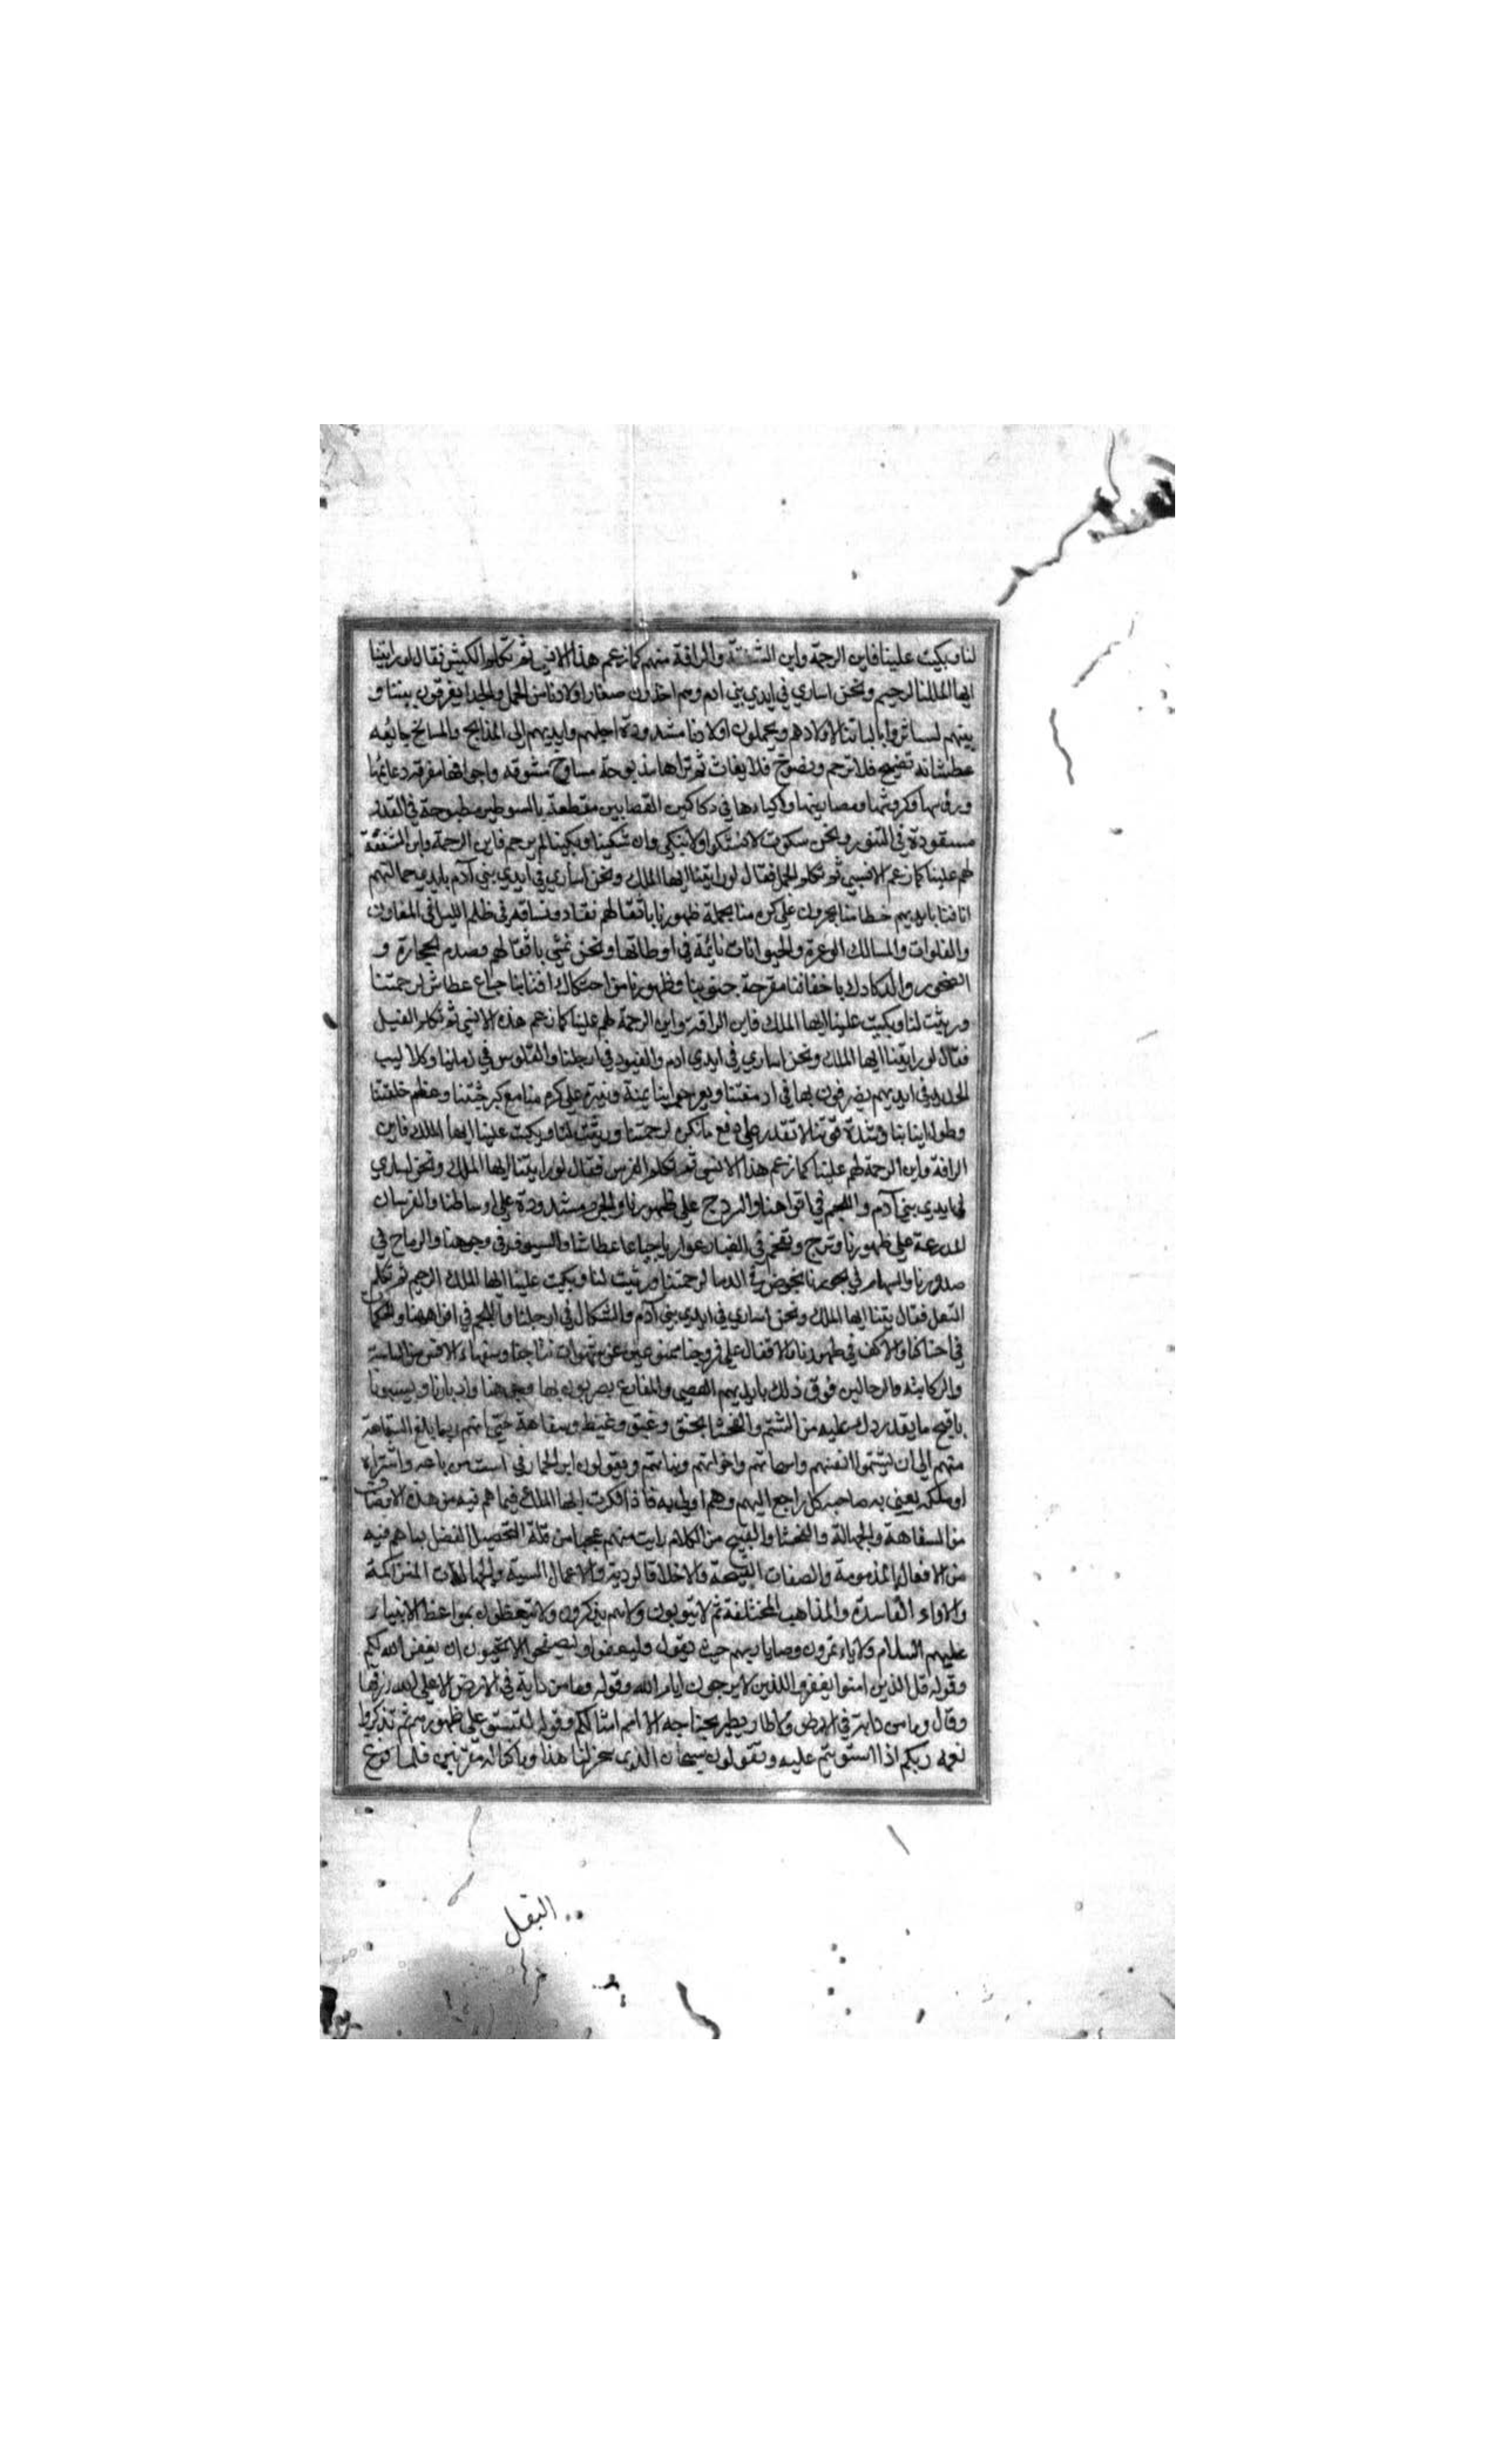 لنا وبكيت علينا فاين الرحمة واين الشفقة والرافة منهم كما زعم هذا الانسي ثم تكلم الكبش فقال لو رايتنا
ايها الملك الرحيم ونحن اساري في ايدي بني ادم وهم اخذون صغار اولادنا من الحمل والجدا يفرقون بيننا و
بينهم البانتنا لاولادهم ويحملون اولادنا مشدودة ارجلهم وايديهم الى المذابح والمسالخ جائعه
عطشانه تضيح فلا ترحم وتضرخ فلا يغاث ثم تراها مذبوحة مسلوخ مشوقه واجوافها مفرقه دعايمها
ورؤسها وكروشها ومصارينها واكبادها في دكاكين القصابين مقطعة بالسوطير مطبوخة في القدر
مسفودة في التنور ونحن سكوت لا نشتكوا ولا نبكي وان شكينا وبكينا لم يرحم فاين الرحمة واين الشفقة
لهم علينا كما زعم الانسي ثم تكلم الجمل فقال لو رايتنا ايها الملك ونحن اساري في ايدي بني آدم بايدي جمالتهم
انافنا بايديهم خطامنا يجرون على كره منا محملة ظهورنا باثقالهم نقاد ونساقه في ظلم الليل في المفاوز
والفلوات والمسالك الوعرة والحيوانات نائمة في اوطانها ونحن نمشي باثقالهم وصدم الحجارة و
الصخور والدكادك باخفافنا مقرحة جنوبنا وظهورنا من احتكاك اقتابنا جياع عطاش لرحمتنا
ورثيت لنا وبكيت علينا ايها الملك فاين الرافة واين الرحمة لهم علينا كما زعم هذه الانسي ثم تكلم الفيل
فقال لو رايتنا ايها الملك ونحن اساري في ايدي ادم والقيود في ارجلنا والقلوس في رقابنا وكلاليب
الحديد في ايديهم يضربون بها في ادمغتنا يمنة ويسرة على كره منا مع كبر جثتنا وعظم خلقتنا
وطول انيابنا وشدة قوتنا لا نقدر على دفع ما نكره لرحمتنا ورثيت لنا وبكيت علينا ايها الملك فاين
الرافة واين الرحمة لهم علينا كما زعم هذا الانسي ثم تكلم الفرس فقال لو رايتنا ايها الملك ونحن اساري
في ايدي بني آدم واللجم في افواهنا والسرج على ظهورنا والحزم مشدودة على اوساطنا والفرسان
المدرعة على ظهورنا وتزج وتقحم في الغبار عواريا جياعا عطاشا والسيوف في وجوهنا والرماح في
صدورنا والسهام في نحورنا نخوض في الدما لرحمتنا ورثيت لنا وبكيت علينا ايها الملك الرحيم ثم تكلم
البغل فقال رايتنا ايها الملك ونحن اساري في ايدي بني آدم والشكال في ارجلنا واللجم في افواهنا والحكمات
في احناكنا والاكف في ظهورنا والاقفال على فروجنا ممنوعين عن شهوات نتاجنا وسفهاء الانس من الساسة
والركابيه والرحالين فوق ذلك بايديهم العصي والمقارع يضربون بها وجوهنا وادبارنا ويسبونا
باقبح ما يقدرون عليه من الشتم والفحشا بحنق وغيظ وسفاهة حتى انهم ربما بلغ السفاهة
منهم الى ان يشتموا انفسهم وامهاتهم واخواتهم وبناتهم ويقولون اير الحمار في است من باعه واشتراه
او ملكه يعني به صاحبه كل راجع اليهم وهم اولى به فاذا فكرت ايها الملك فيما هم فيه من هذه الاوصاف
من السفاهة والجهالة والفحشا والقبيح من الكلام رايت منهم عجبا من قلة التحصيل لفضل بما هم فيه
من الافعال المذمومة والصفات القبيحة والاخلاق الردية والاعمال السية والجهالات المتراكمة
والاراء الفاسدة والمذاهب المختلفة ثم لا يتوبون ولا هم يذكرون ولا يتعظون بمواعظ الانبياء
عليهم السلام ولا ياتمرون وصايا ربهم حيث يقول وليعفوا وليصفحوا الا تحبون ان يغفر الله لكم
وقوله قل للذين امنوا يغفروا للذين لا يرجون ايام الله وقوله وما من دابة في الارض الا على الله رزقها
وقال وما من دابة في الارض ولا طاير يطير بجناحيه الا امم امثالكم وقوله لتستوا على ظهورهم ثم تذكروا
نعمه ربكم اذا استويتم عليه وتقولون سبحان الذي سخر لنا هذا وما كنا له مقرنين فلما فرغ
البغل